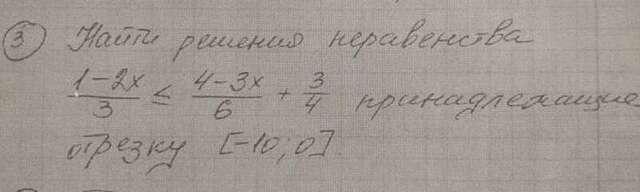 3 Найти решения неравенства
(1-2x)/3 ≤ (4-3x)/6 + 3/4 принадлежащие
отрезку [-10; 0]